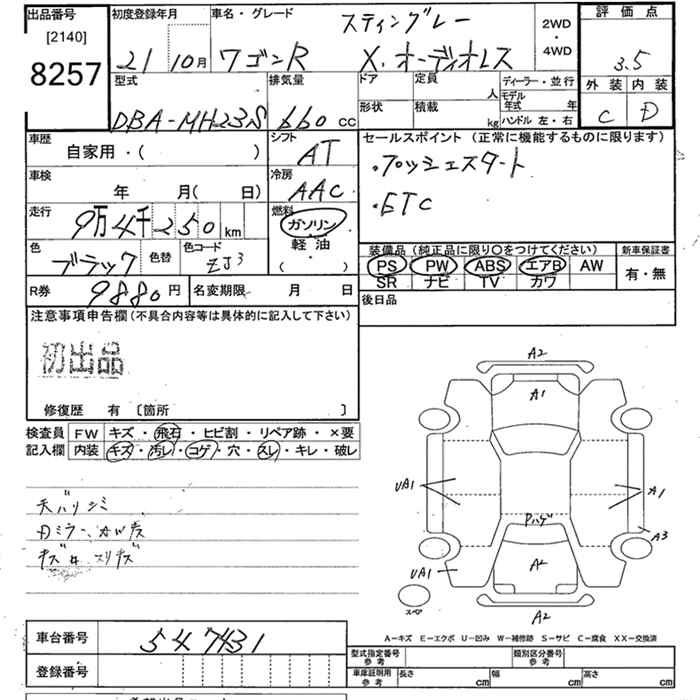 出品番号 [2140] 8257
初度登録年月 21 10月
車名・グレード スティングレー
ワゴンR X.オーディオレス
2WD ・ 4WD
評価点 3.5
外装 内装
C D
型式 DBA-MH23S
排気量 660 cc
ドア 定員 人
形状 積載 kg
ディーラー・並行
モデル年式 年
ハンドル 左・右
車歴 自家用・( )
シフト AT
車検 年 月( 日)
冷房 AAC
走行 9万4千250 km
燃料 ガソリン 軽油 ( )
色 ブラック 色替 色コード ZJ3
セールスポイント (正常に機能するものに限ります)
・プッシュスタート
・ETC
装備品 (純正品に限り○をつけてください) 新車保証書
PS PW ABS エアB AW 有・無
SR ナビ TV カワ
R券 9880円 名変期限 月 日
後日品
注意事項申告欄 (不具合内容等は具体的に記入して下さい)
初出品
修復歴 有 [箇所 ]
検査員 FW キズ・飛石・ヒビ割・リペア跡・×要
記入欄 内装 キズ・汚レ・コゲ・穴・スレ・キレ・破レ
天バリシミ
A2
A1
UA1 A1
Pハゲ A3
UA1 A2
スペア A2
A-キズ E-エクボ U-凹み W-補修跡 S-サビ C-腐食 XX-交換済
車台番号 547431
登録番号
型式指定番号 参考 類別区分番号 参考
車庫証明用 参考 長さ cm 幅 cm 高さ cm